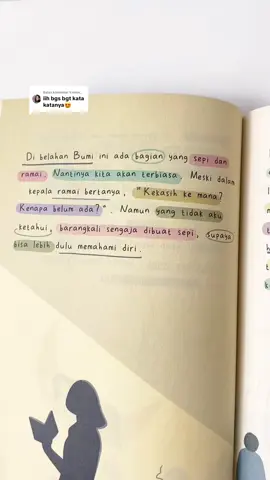 iih bgs bgt kata
katanya😍
Di belahan Bumi ini ada bagian yang sepi dan
ramai. Nantinya kita akan terbiasa. Meski dalam
kepala ramai bertanya, "Kekasih ke mana?
Kenapa belum ada?". Namun yang tidak aku
ketahui, barangkali sengaja dibuat sepi, supaya
bisa lebih dulu memahami diri.